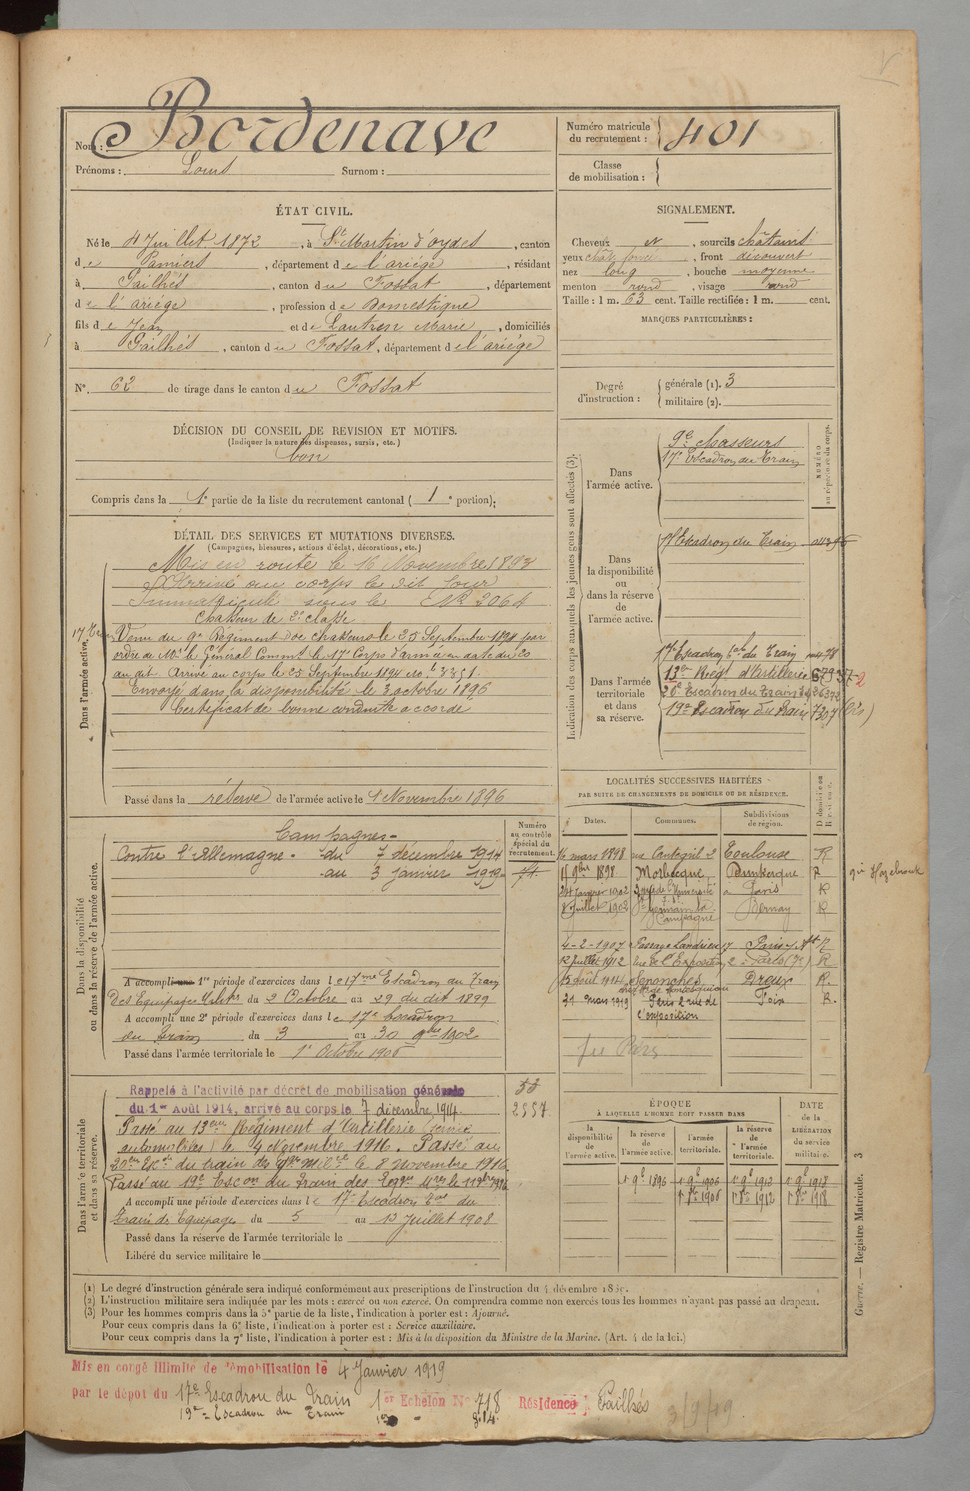 Nom : Bordenave
Prénoms : Louis Surnom :
Numéro matricule du recrutement : 401
Classe de mobilisation :
ÉTAT CIVIL.
Né le 4 Juillet 1872, à St Martin d'oydes, canton
de Pamiers, département de l'ariége, résidant
à Pailhés, canton du Fossat, département
de l'ariége, profession de Domestique
fils de Jean et de Lautren Marie, domiciliés
à Pailhés, canton du Fossat, département de l'ariége
N°. 62 de tirage dans le canton du Fossat
SIGNALEMENT.
Cheveux N, sourcils châtains
yeux chât foncé, front découvert
nez long, bouche moyenne
menton rond, visage rond
Taille : 1 m. 63 cent. Taille rectifiée : 1 m. cent.
MARQUES PARTICULIÈRES :
Degré d'instruction : générale (1). 3
militaire (2).
DÉCISION DU CONSEIL DE REVISION ET MOTIFS.
(Indiquer la nature des dispenses, sursis, etc.)
bon
Compris dans la 1e partie de la liste du recrutement cantonal ( 1e portion);
DÉTAIL DES SERVICES ET MUTATIONS DIVERSES.
(Campagnes, blessures, actions d'éclat, décorations, etc.)
Dans l'armée active.
Mis en route le 16 Novembre 1893
Arrivé au corps le dit jour
Immatriculé sous le No 2064
Chasseur de 2e classe
17e Train
Venu du 9e Régiment de Chasseurs le 25 Septembre 1894 par
ordre de Mr le Général Commt le 17e Corps d'armée en date du 20
au dit. Arrivé au corps le 25 Septembre 1894 no 3351.
Envoyé dans la disponibilité le 3 octobre 1896
Certificat de bonne conduite accordé
Passé dans la réserve de l'armée active le 1 Novembre 1896
Indication des corps auxquels les jeunes gens sont affectés (3).
NUMÉRO au répertoire du corps.
Dans l'armée active.
9e Chasseurs
17e Escadron du Train
Dans la disponibilité ou dans la réserve de l'armée active.
17e Escadron du Train
Dans l'armée territoriale et dans sa réserve.
17e Escadron tal du Train
13e Régt d'Artillerie
20e Escadron du Train
19e Escadron du Train 7307 (bis)
LOCALITÉS SUCCESSIVES HABITÉES
PAR SUITE DE CHANGEMENTS DE DOMICILE OU DE RÉSIDENCE.
Dates. Communes. Subdivisions de région. D domicile ou R résidence.
14 mars 1898 rue Cantegril 2 Toulouse R
15 9bre 1898 Morbecque Dunkerque R
qui Hazebrouck
24 Janvier 1902 3 rue de l'Université Paris R
8 Juillet 1902 St Germain la Campagne Bernay R
4-2-1907 Passage Landrieu 17 Paris R
12 Juillet 1912 rue de l'Exposition 2 Paris (7e) R
15 Août 1914 Senonches Dreux R.
21 Mars 1919 Paris 2 rue de l'exposition Foix R.
Dans la disponibilité ou dans la réserve de l'armée active.
Numéro au contrôle spécial du recrutement.
Campagnes
Contre l'Allemagne. du 7 décembre 1914
au 3 janvier 1919
74
A accompli une 1re période d'exercices dans le 17me Escadron du Train
des Equipages Milites du 2 Octobre au 29 du dit 1899
A accompli une 2e période d'exercices dans le 17e Escadron
du Train du 3 au 30 9bre 1902
Passé dans l'armée territoriale le 1er Octobre 1906
Dans l'armée territoriale et dans sa réserve.
Rappelé à l'activité par décret de mobilisation générale
du 1er Août 1914, arrivé au corps le 7 décembre 1914.
Passé au 13eme Régiment d'Artillerie (service
automobiles) le 4 Novembre 1916. Passé au
20eme Esc. du train des Eqges Milres le 8 Novembre 1916
Passé au 19e Escon du Train des Eqges Mres le 11 9bre 1916
A accompli une période d'exercices dans le 17e Escadron Tal du
Train des Equipages du 5 au 13 Juillet 1908
Passé dans la réserve de l'armée territoriale le
Libéré du service militaire le
53
2557
ÉPOQUE
À LAQUELLE L'HOMME DOIT PASSER DANS
DATE de la LIBÉRATION du service militaire.
la disponibilité de l'armée active. la réserve de l'armée active. l'armée territoriale. la réserve de l'armée territoriale.
1er 9b 1896 1er 9b 1906 1er 9b 1912 1er 9b 1918
1er 8b 1906 1er 8b 1912 1er 8b 1918
(1) Le degré d'instruction générale sera indiqué conformément aux prescriptions de l'instruction du 4 décembre 1889.
(2) L'instruction militaire sera indiquée par les mots : exercé ou non exercé. On comprendra comme non exercés tous les hommes n'ayant pas passé au drapeau.
(3) Pour les hommes compris dans la 5e partie de la liste, l'indication à porter est : Ajourné.
Pour ceux compris dans la 6e liste, l'indication à porter est : Service auxiliaire.
Pour ceux compris dans la 7e liste, l'indication à porter est : Mis à la disposition du Ministre de la Marine. (Art. 4 de la loi.)
Guerre. — Registre Matricule. 3
Mis en congé illimité de démobilisation le 4 Janvier 1919
par le dépôt du 17e Escadron du Train 1er Echelon No 718 Résidence à Pailhés
19e Escadron du Train
3/9/19